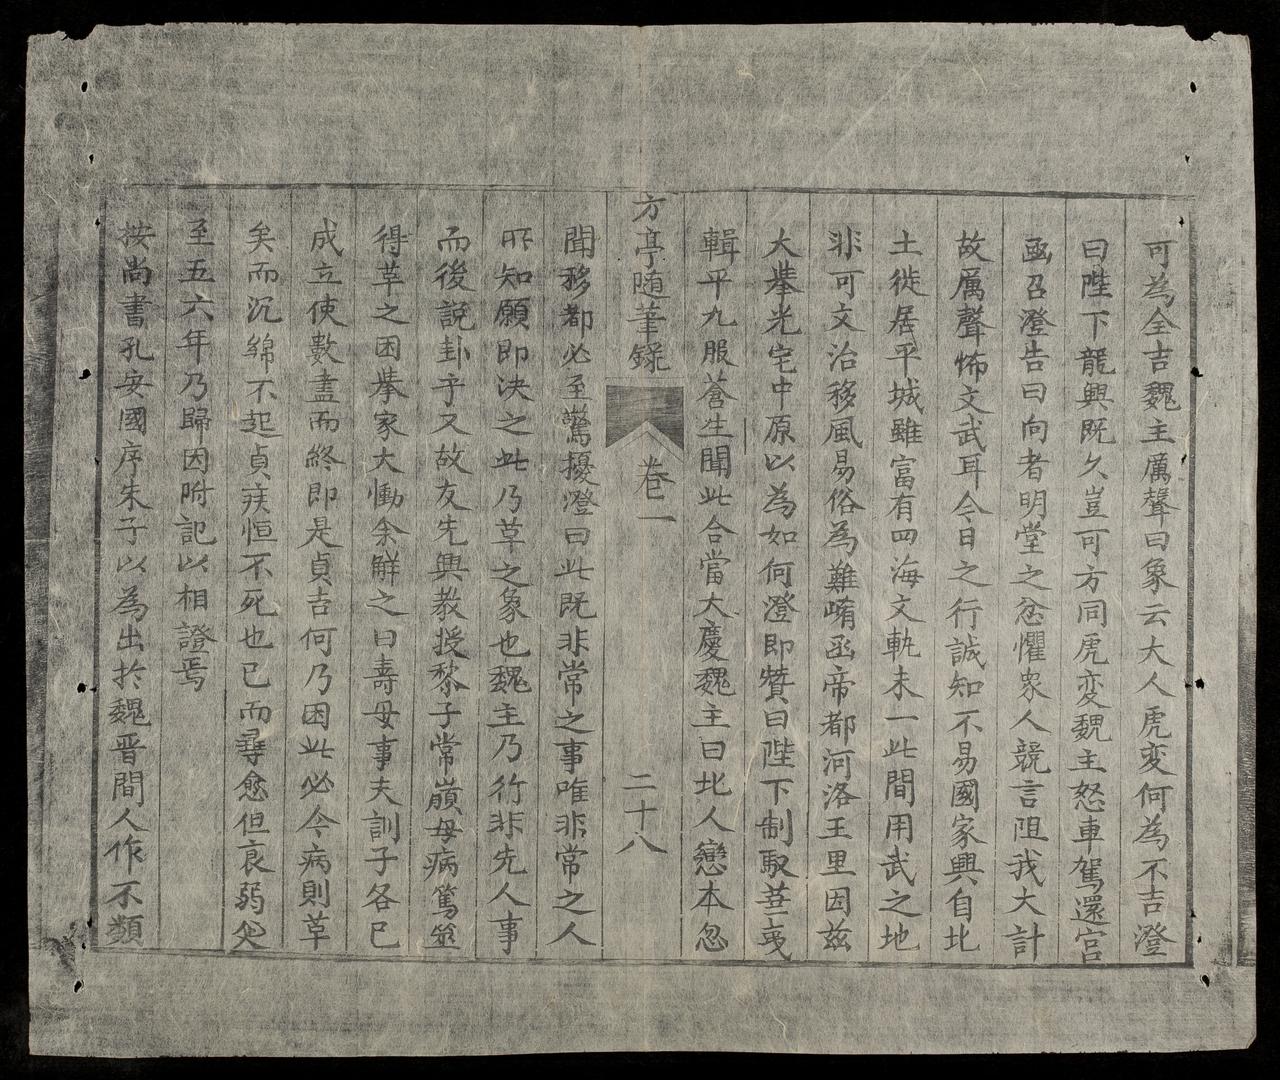 可為全吉魏主厲聲曰象云大人虎変何為不吉澄
曰陛下龍興既久豈可方同虎変魏主怒車駕還宮
函召澄告曰向者明堂之忿懼衆人競言阻我大計
故厲聲怖文武耳今日之行誠知不易國家興自北
土徙居平城雖富有四海文軌未一此間用武之地
非可文治移風易俗為難崤函帝都河洛王里因兹
大舉光宅中原以為如何澄即贊曰陛下制馭華夷
輯平九服蒼生聞此合當大慶魏主曰北人戀本忽
方亭随筆錄
卷一
二十八
聞移都必至驚擾澄曰此既非常之事唯非常之人
所知願即決之此乃革之象也魏主乃行非先人事
而後説卦乎又故友先興教授黎子常嵿母病篤筮
得革之困舉家大慟余解之曰壽母事夫訓子各已
成立使數盡而終即是貞吉何乃困此必今病則革
矣而沉綿不起貞疾恒不死也已而尋愈但衰弱矣
至五六年乃歸因附記以相證焉
按尚書孔安國序朱子以為出於魏晋間人作不類